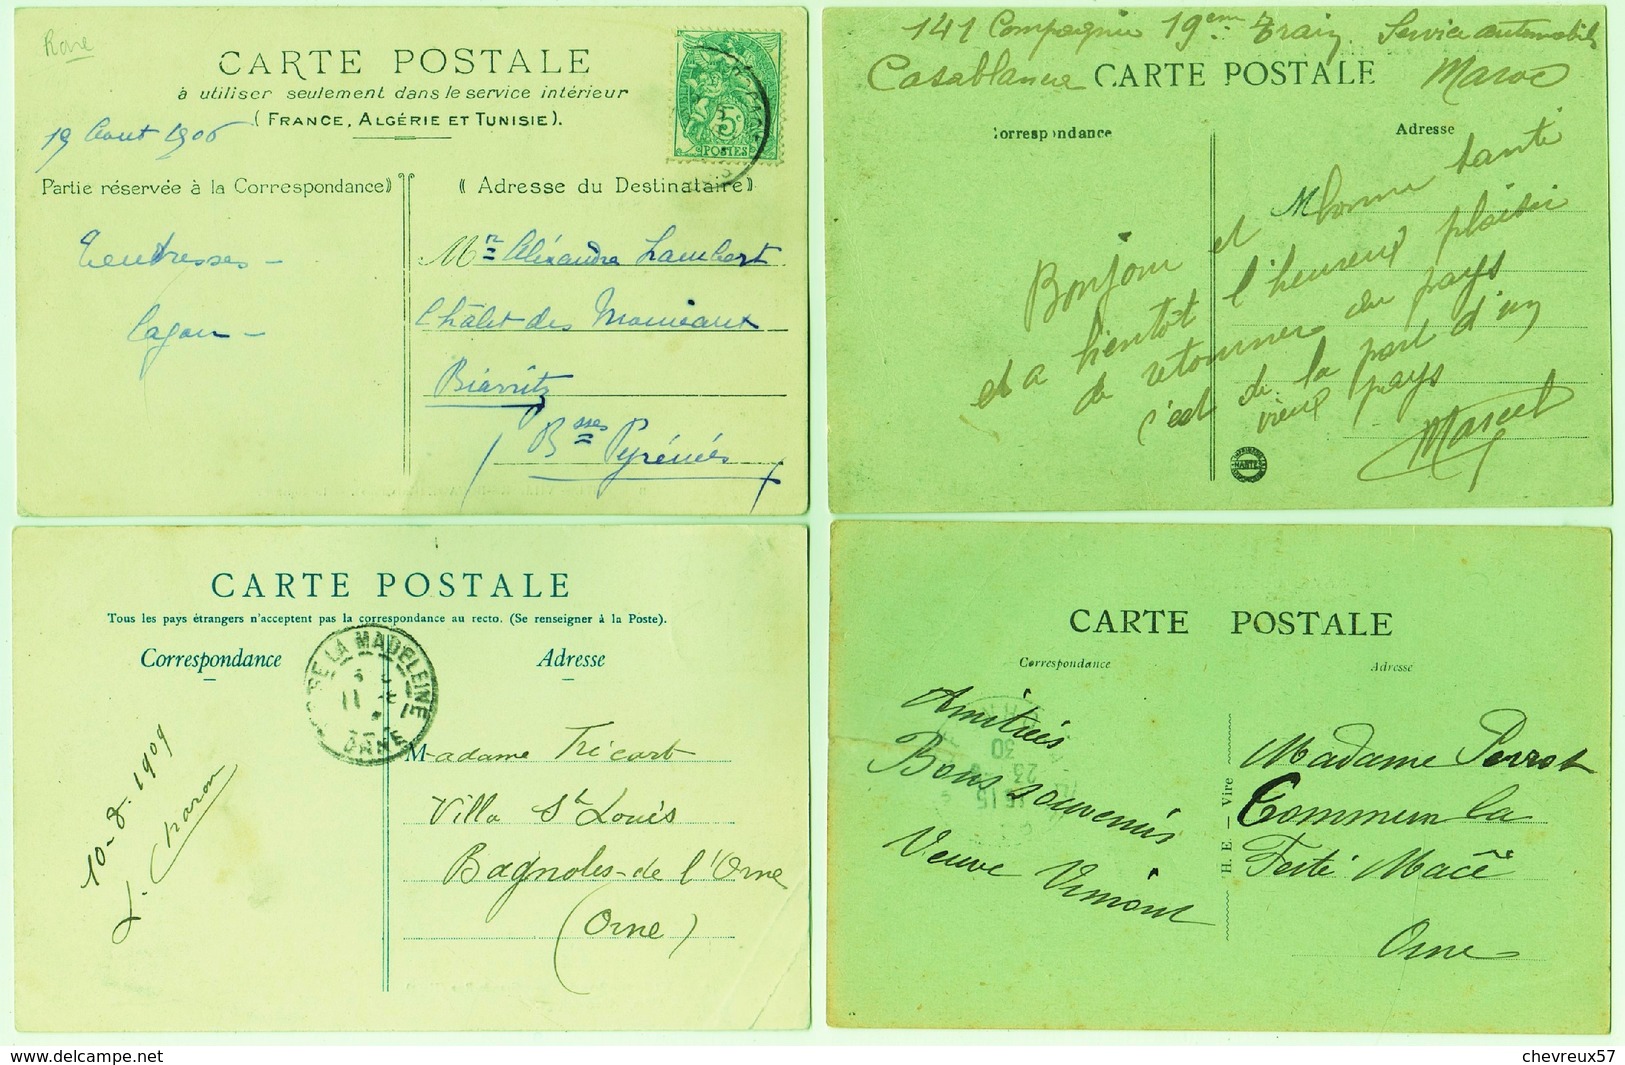 Rare
CARTE POSTALE
à utiliser seulement dans le service intérieur
(FRANCE, ALGÉRIE ET TUNISIE).
19 Aout 1906
5c
POSTES
Partie réservée à la Correspondance)
( Adresse du Destinataire)
Tendresses -
Mr Alexandre Lambert
Châlet des Moineaux
Biarritz
(Bsses Pyrénées)
141 Compagnie 19em Train Service automobile
Casablanca CARTE POSTALE Maroc
Correspondance
Adresse
M
Bonjour et bonne santé
et a bientôt l'heureux plaisir
de retourner au pays
c'est de la part d'un
vieux pays
Marcel
NANTES
CARTE POSTALE
Tous les pays étrangers n'acceptent pas la correspondance au recto. (Se renseigner à la Poste).
Correspondance
Adresse
DE LA MADELEINE
ORNE
10-8-1909
J. Charon
Madame Tricart
Villa St Louis
Bagnoles-de l'Orne
(Orne)
CARTE POSTALE
Correspondance
Adresse
Amitiés
Bons souvenirs
Veuve Vimont
H. E. — Vire
Madame Perrot
Commun la
Ferté Macé
Orne
delcampe.net
chevreux57